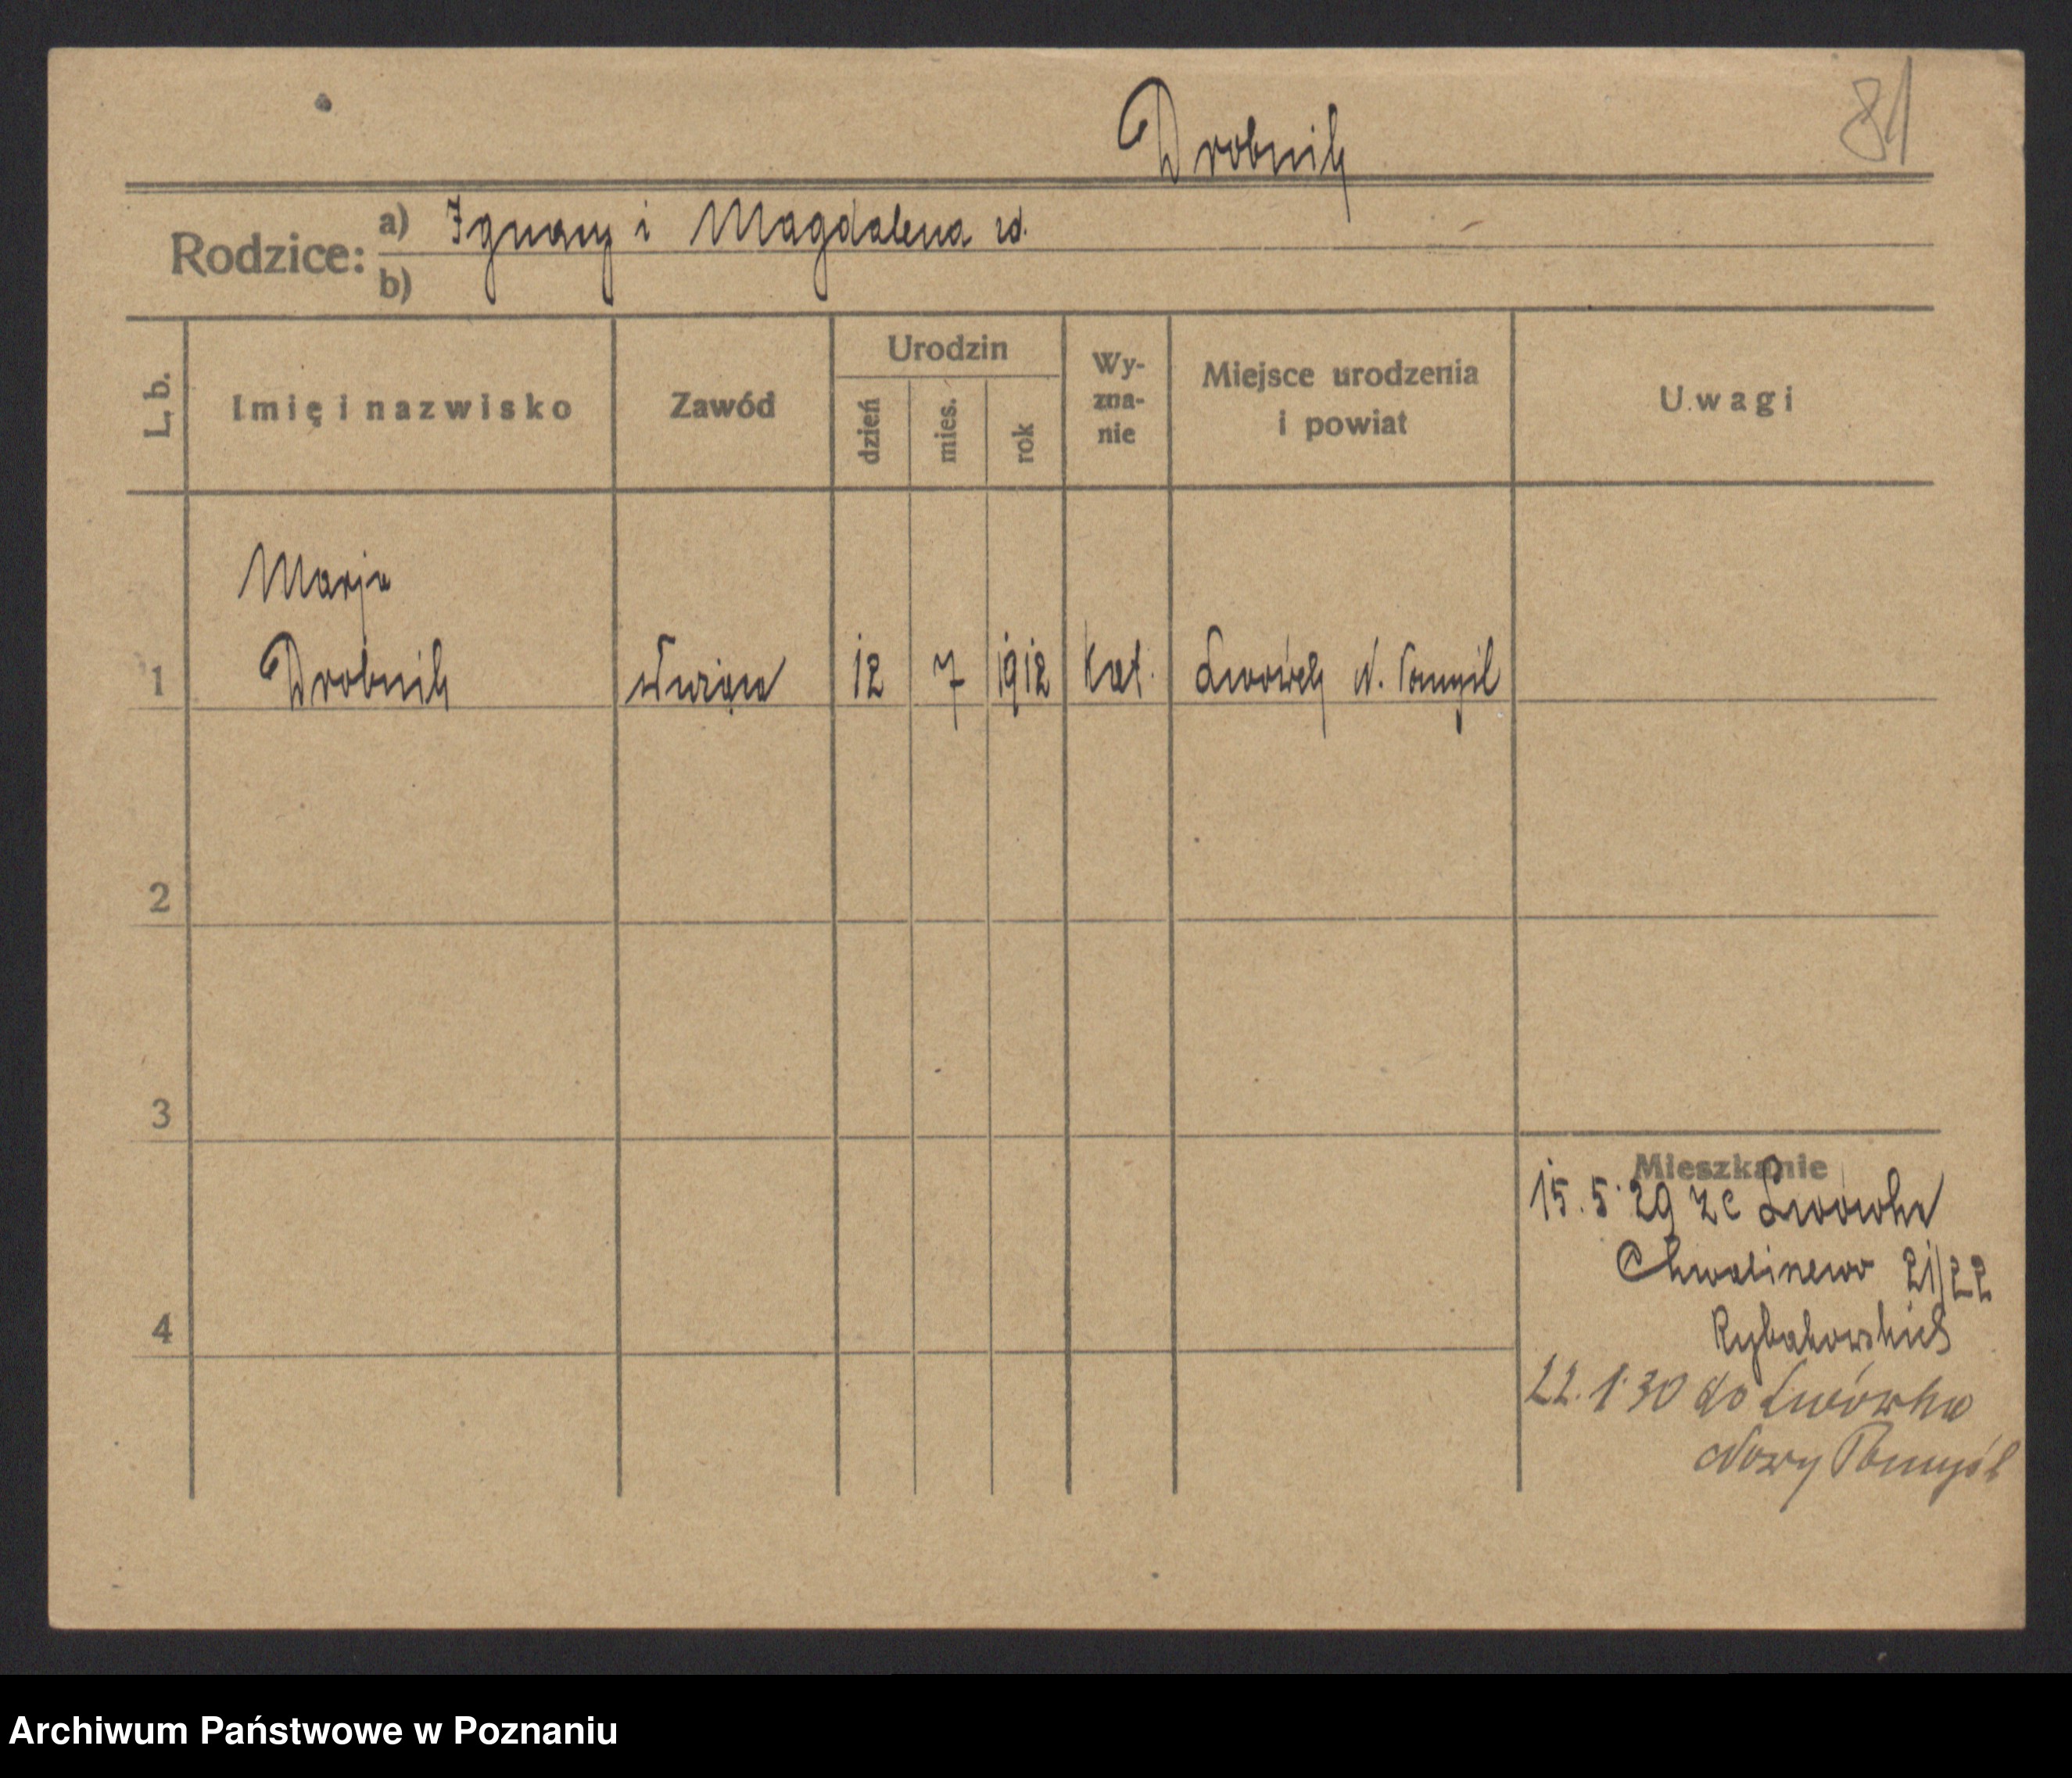 Drobnik
81
Rodzice:
a) Ignacy i Magdalena rd.
b)
L. b.
Imię i nazwisko
Zawód
Urodzin
dzień
mies.
rok
Wy-
zna-
nie
Miejsce urodzenia
i powiat
Uwagi
Marja
1 Drobnik 12 7 1912 kat. Lwówek N. Tomyśl
2
3
4
Mieszkanie
15.5.29 ze Lwówka
Chwaliszewo 21/22
22.1.30 do Lwówka
Nowy Tomyśl
Archiwum Państwowe w Poznaniu